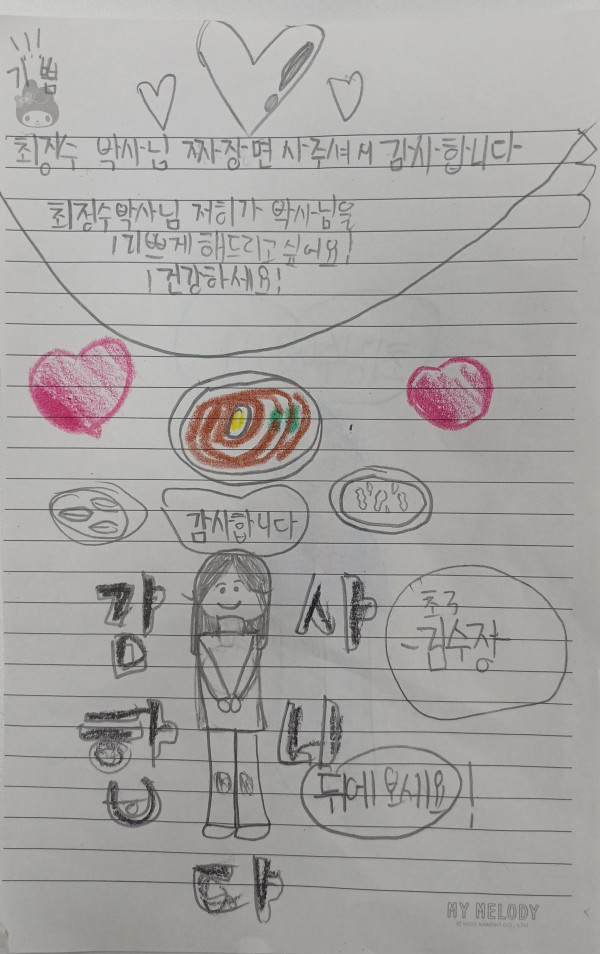 기쁨
최정수 박사님 짜장면 사주셔서 감사합니다
최정수박사님 저희가 박사님을
기쁘게 해드리고싶어요!
건강하세요!
감사합니다
감 사
합 니
다
김수장
뒤에 보세요!
MY MELODY